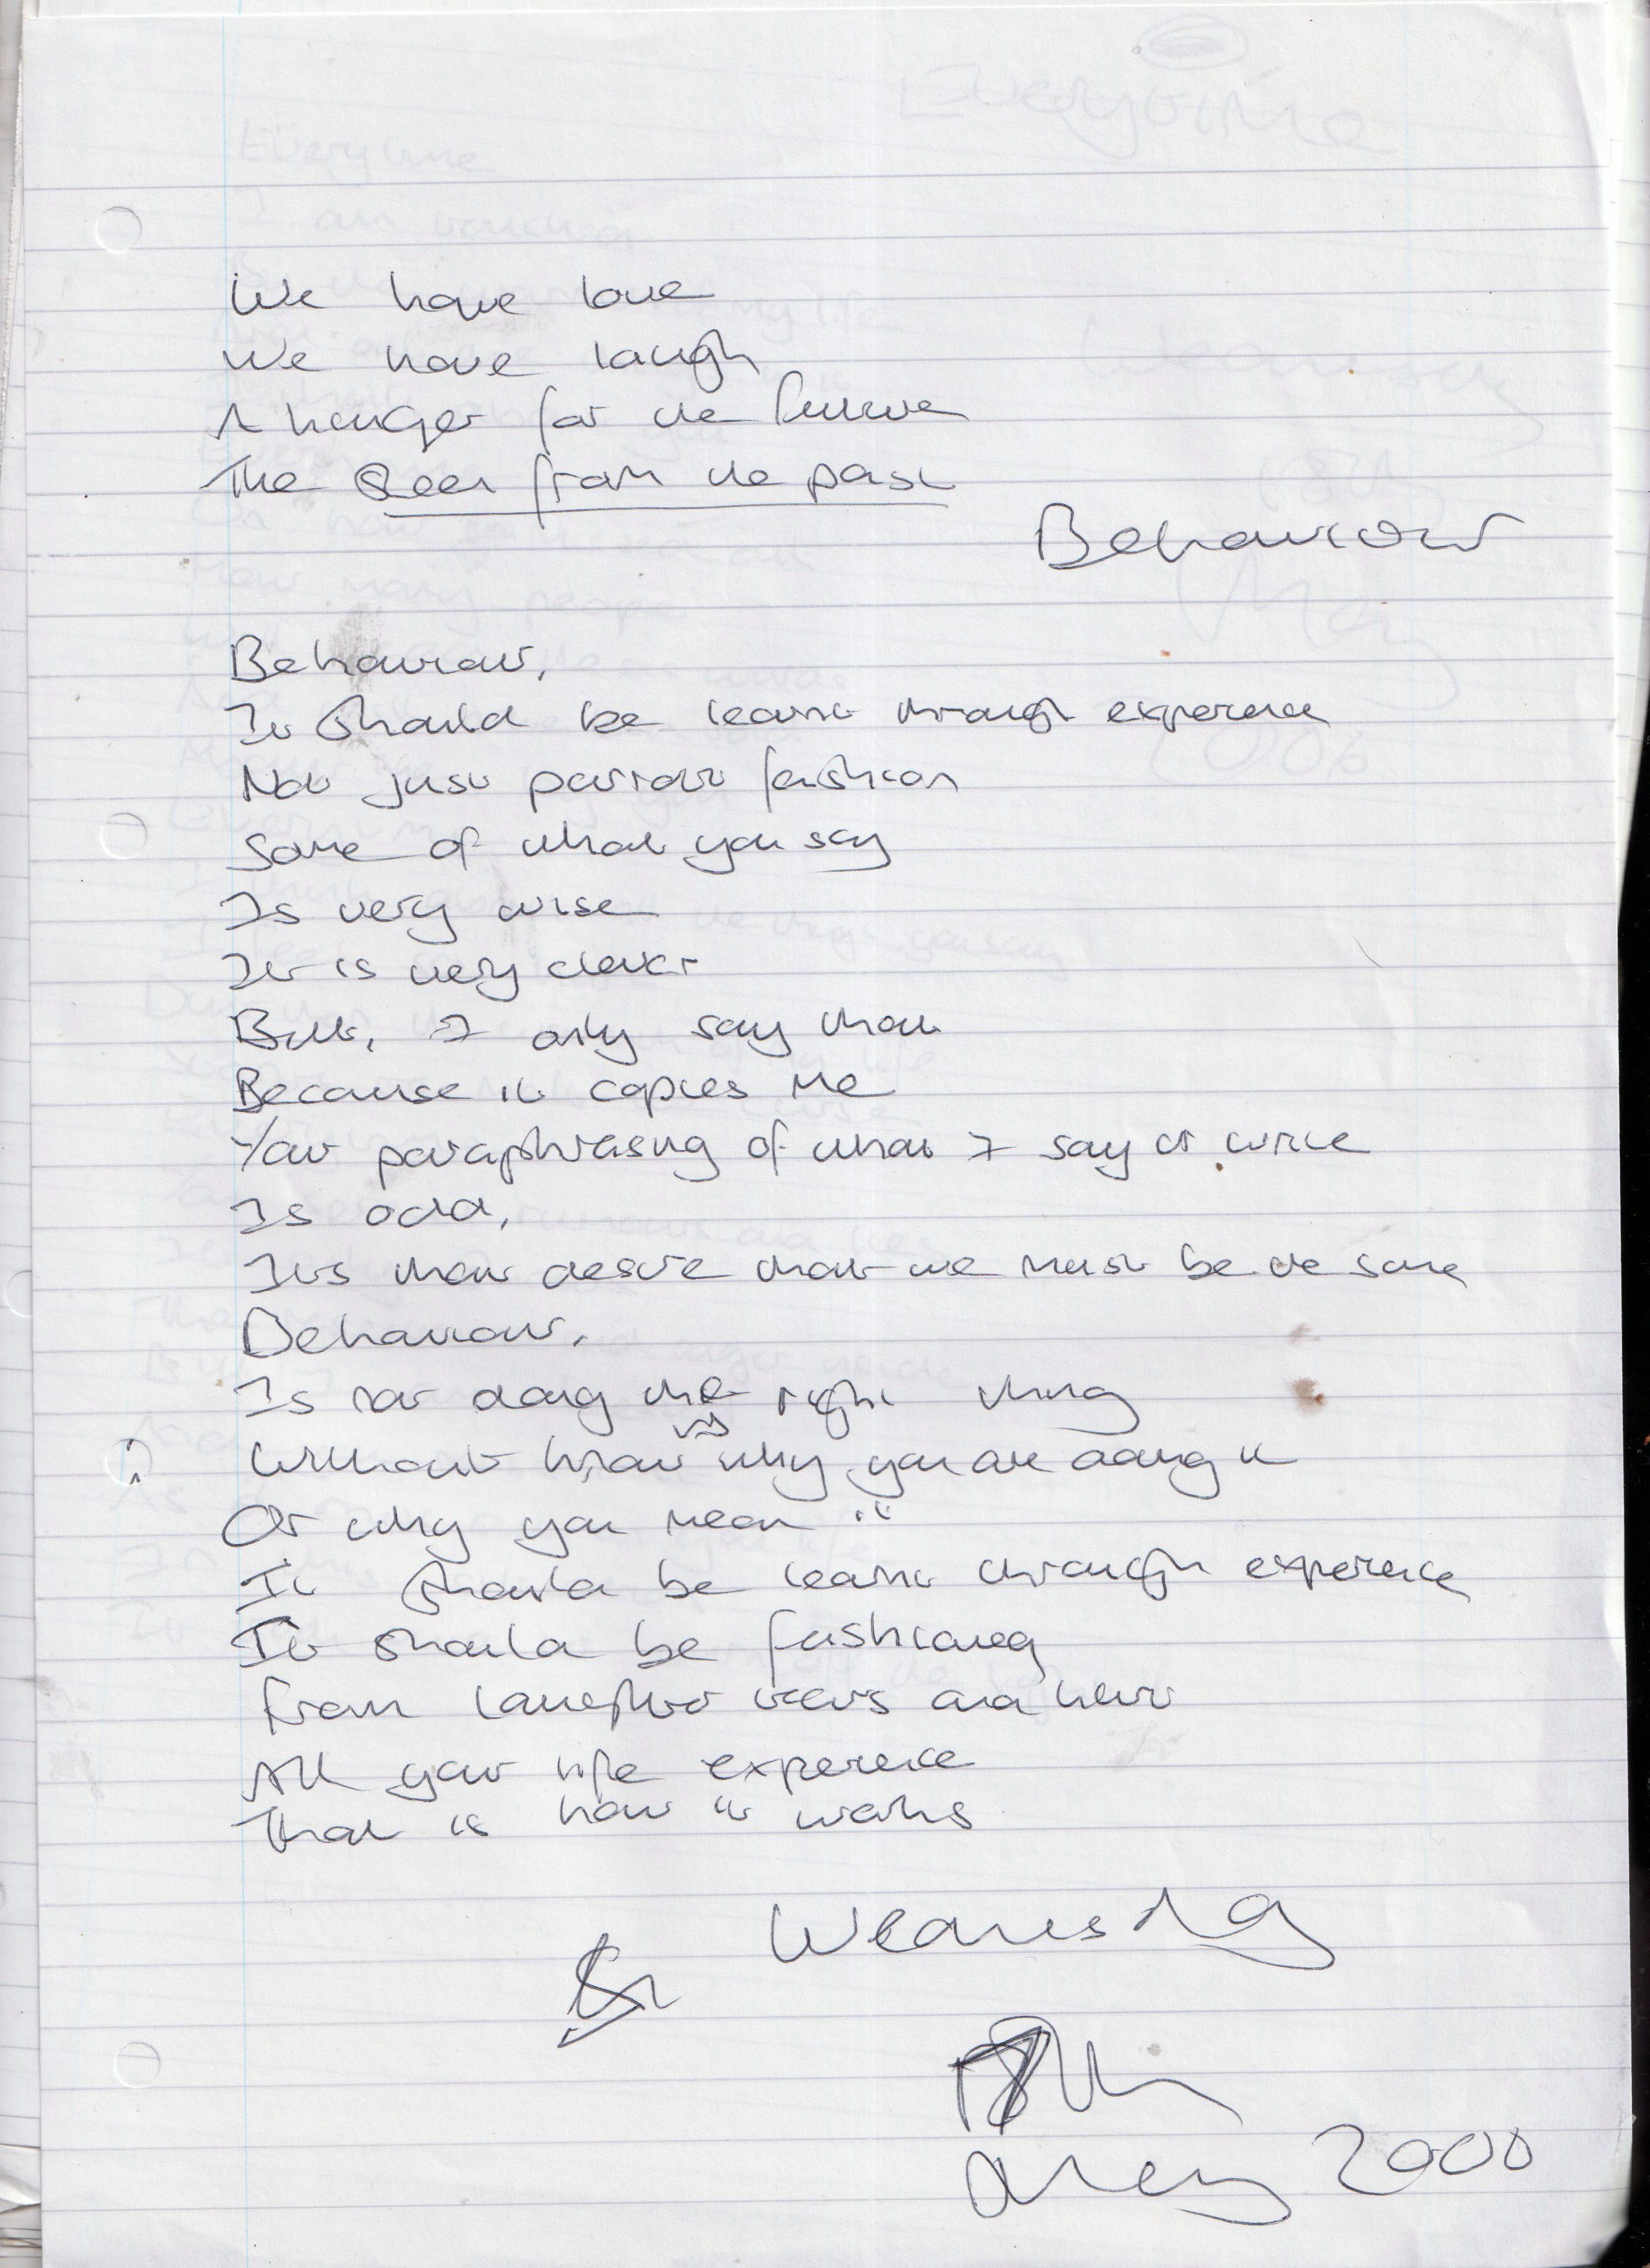 We have love
We have laugh
A hunger for the future
The Seen from the past
Behaviour
Behaviour,
It should be learnt through experence
Not just parrott fashion
Some of what you say
Is very wise
It is very clever
But, I only say that
Because it copies me
Your paraphrasing of what I say it twice
Is odd,
Its that desire that we must be the same
Behaviour,
Is not doing the right thing
Without knowing why you are doing it
Or why you mean it
It should be learnt through experence
It should be fashioned
from views and
All your life experence
That is how it works
Wednesday
17th
May 2000